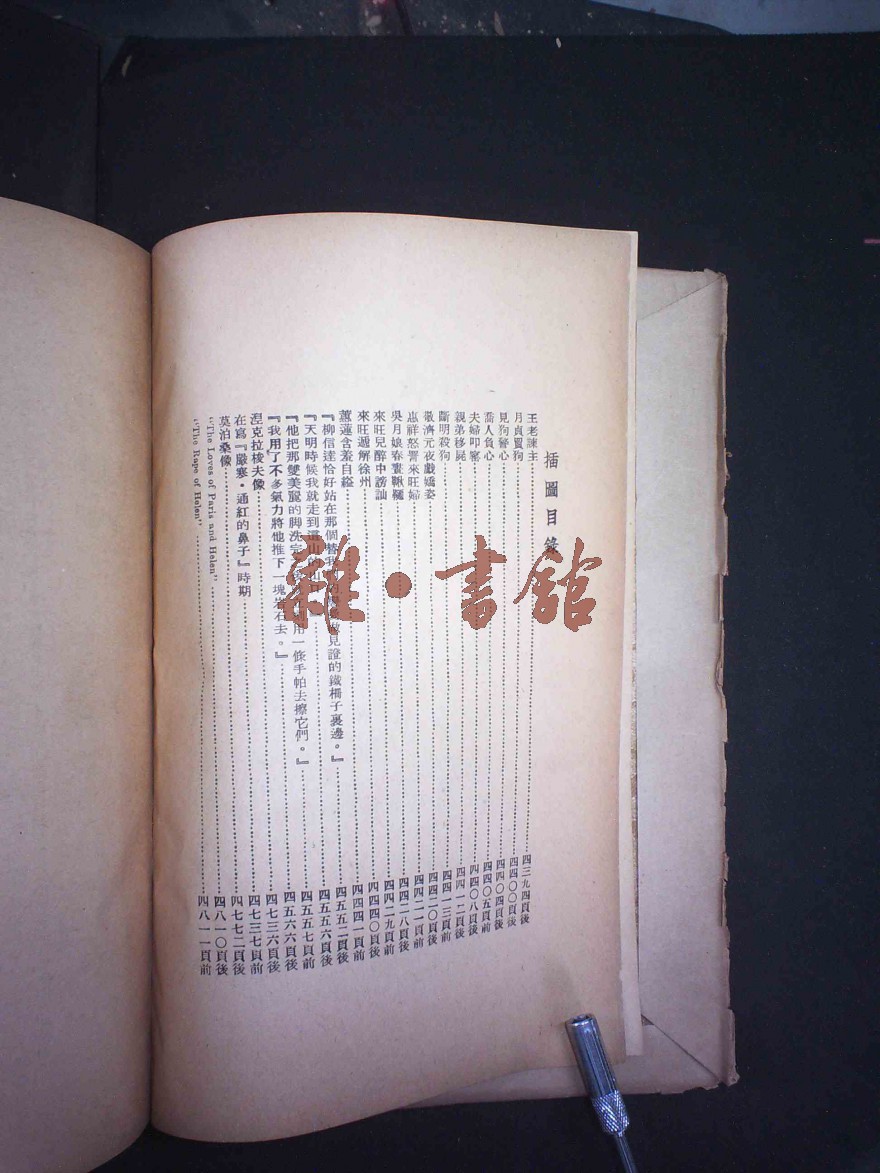 插圖目錄
王老諫主……四三九四頁後
月貞買狗……四四〇〇頁後
見狗警心……四四〇四頁後
喬人負心……四四〇五頁前
夫婦叩窰……四四〇八頁後
親弟移屍……四四一二頁後
斷明殺狗……四四一三頁前
敬濟元夜戲嬌姿……四四二〇頁後
惠祥怒詈來旺婦……四四二一頁前
吳月娘春晝鞦韆……四四二八頁後
來旺兒醉中謗訕……四四二九頁前
來旺遞解徐州……四四四〇頁後
蕙蓮含羞自縊……四四四一頁前
『柳信達恰好站在那個替我做見證的鐵柵子裏邊。』……四五五二頁後
『天明時候我就走到這山的山……四五五六頁後
『他把那雙美麗的脚洗完用一條手帕去擦它們。』……四五五七頁前
『我用了不多氣力將他推下一塊岩石去。』……四五六六頁後
涅克拉梭夫像……四七三六頁後
在寫『嚴寒·通紅的鼻子』時期……四七三七頁前
莫泊桑像……四七七二頁後
"The Loves of Paris and Helen"……四八一〇頁後
"The Rape of Helen"……四八一一頁前
雜·書館